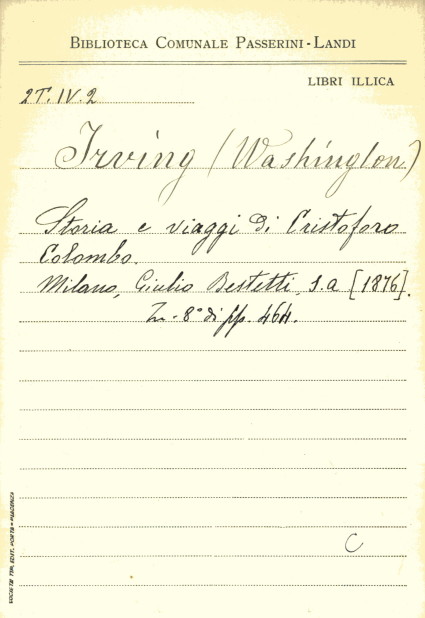 BIBLIOTECA COMUNALE PASSERINI-LANDI
LIBRI ILLICA
2T.IV.2
Irving (Washington)
Storia e viaggi di Cristoforo
Colombo.
Milano, Giulio Bestetti, s.a [1876].
In-8° di pp. 464.
C